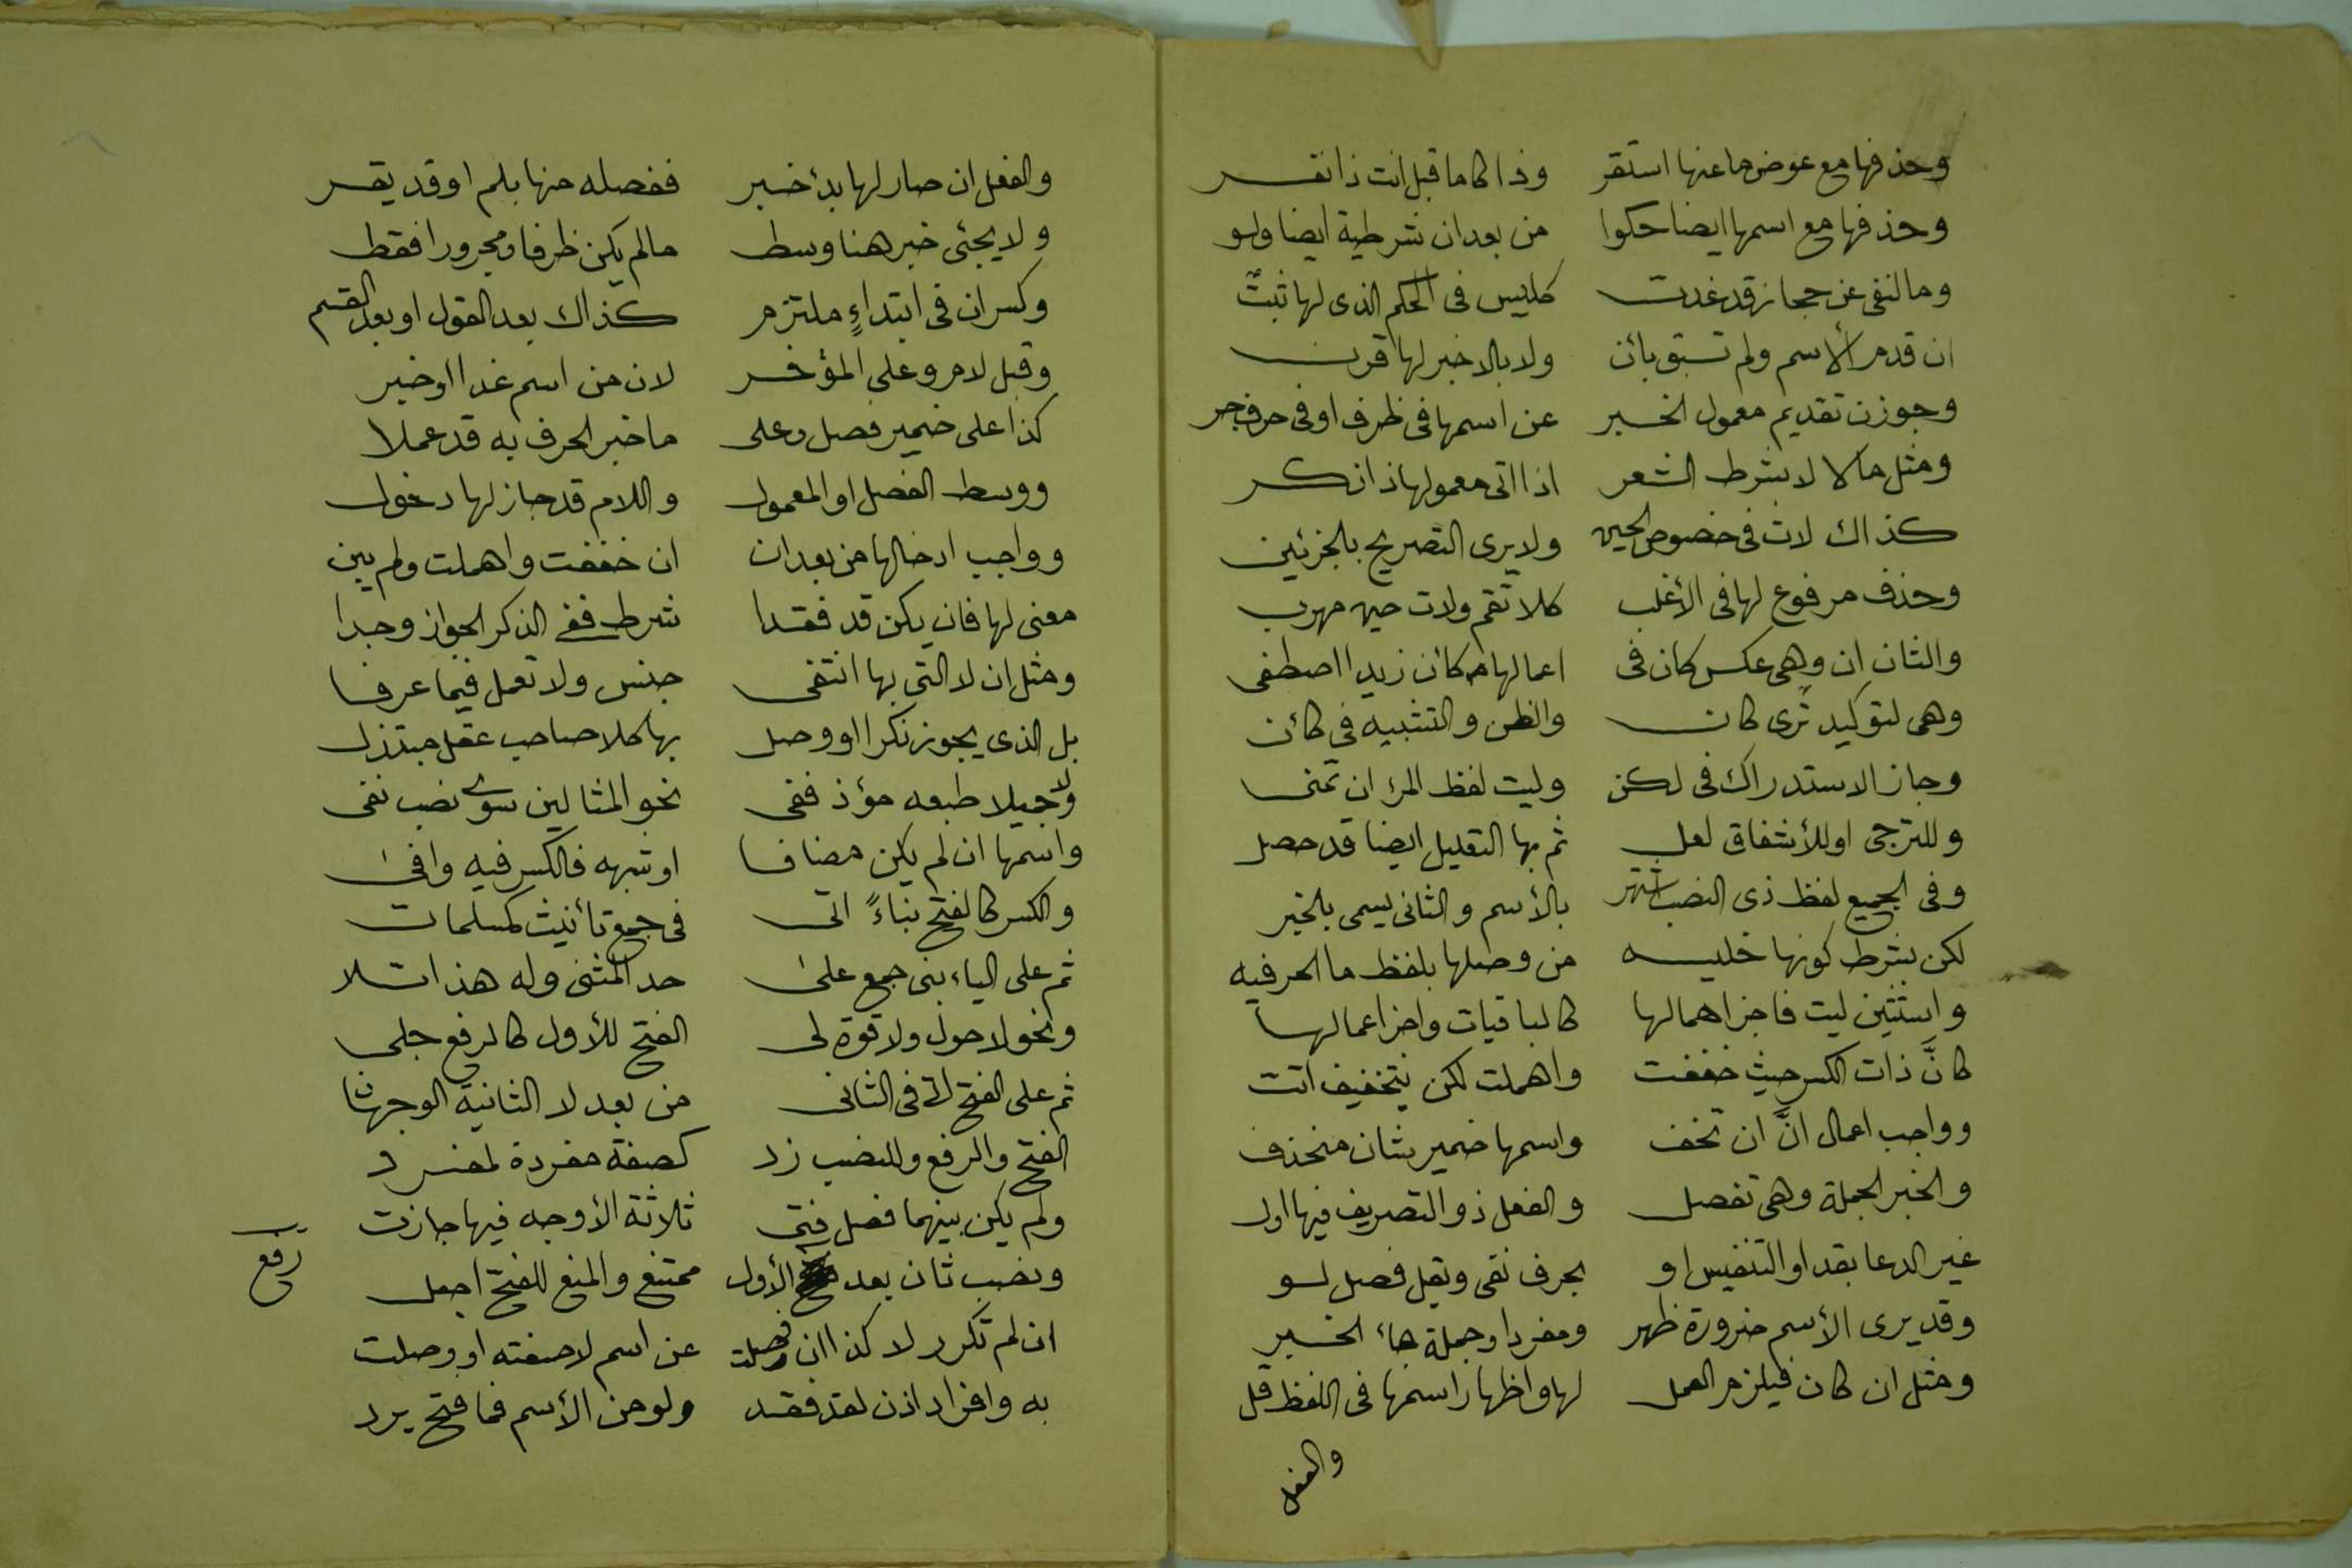 وحذفها مع عوض ما عنها استقر وذا كاما قبل انت ذا نفر
وحذفها مع اسمها ايضا حكوا من بعد ان شرطية ايضا ولو
وما لنفى عن حجاز قد غدت كليس فى الحكم الذى لها ثبت
ان قدم الأسم ولم تسبق بائن ولا بالا خبر لها قرن
وجوزن تقديم معمول الخبر عن اسمها فى ظرف او فى حرف جر
ومثل ما لا لا بشرط الشعر اذا اتى معمولها ذا نكر
كذاك لات فى خصوص الحين ولا يرى التصريح بالجزئين
وحذف مرفوع لها فى الأغلب كلا تقم ولات حين مهرب
والثان ان وهى عكس كان فى اعمالها كائن زيدا اصطفى
وهى لتوكيد ترى كان والظن والتشبيه فى كائن
وجاز الاستدراك فى لكن وليت لفظ المرء ان تمنى
وللترجى او للأشفاق لعل ثم بها التعليل ايضا قد حصل
وفى الجميع لفظ ذى النصب اشتهر بالأسم والثانى يسمى بالخبر
لكن بشرط كونها خليه من وصلها بلفظ ما الحرفيه
واستثنين ليت فاجز اهمالها كالباقيات واجز اعمالها
كانَّ ذات الكسر حيث خففت واهملت لكن بتخفيف اتت
وواجب اعمال انَّ ان تخف واسمها ضمير شان منحذف
والخبر الجملة وهى تفصل والفعل ذو التصريف فيها اول
غير الدعا بقد او التنفيس او بحرف نفى وتقل فصل لو
وقد يرى الأسم ضرورة ظهر ومفردا وجملة جاء الخبر
ومثل ان كان فيلزم العمل لها واظهار اسمها فى اللفظ قل
والفعل
والفعل ان صار لها بدء خبر ففصله منها بلم او قد يقر
ولا يجئى خبر هنا وسط مالم يكن ظرفا ومجرورا فقط
وكسر ان فى ابتداءٍ ملتزم كذاك بعد القول او بعد القسم
وقبل لام وعلى المؤخر لان من اسم غدا او خبر
كذا على ضمير فصل وعلى ما خبر الحرف به قد عملا
ووسط الفصل او المعمول واللام قد جاز لها دخول
وواجب ادخالها من بعد ان ان خففت واهملت ولم يبن
معنى لها فان يكن قد فقدا شرط ففى الذكر الجواز وجدا
ومثل ان لا التى بها انتفى جنس ولا تعمل فيما عرفا
بل الذى يجوز نكرا او وصل بها كلا صاحب عقل مبتذل
ولا جميلا طبعه مؤذ ففى نحو المثالين سوى نصب نفى
واسمها ان لم يكن مضافا او شبهه فالكسر فيه وافى
والكسر كالفتح بناءً اتى فى جمع تأنيث كمسلمات
ثم على الياء بنى جمع على حد المثنى وله هذا تلا
ونحو لا حول ولا قوة لى الفتح للأول كالرفع جلى
ثم على الفتح اتى فى الثانى من بعد لا الثانية الوجهان
الفتح والرفع وللنصب زد كصفة مفردة لمفرد
ولم يكن بينهما فصل فتى ثلاثة الأوجه فيها جازت
ونصب ثان بعد الأول ممتنع والمنع للفتح اجعل
رفع
ان لم تكرر لا كذا ان فصلت عن اسم لا صفته او وصلت
به وافراد اذن لقد فقد ولو من الأسم فما فتح يرد